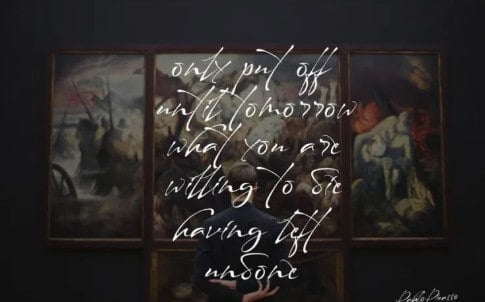 only put off
until tomorrow
what you are
willing to die
having left
undone
Pablo Picasso